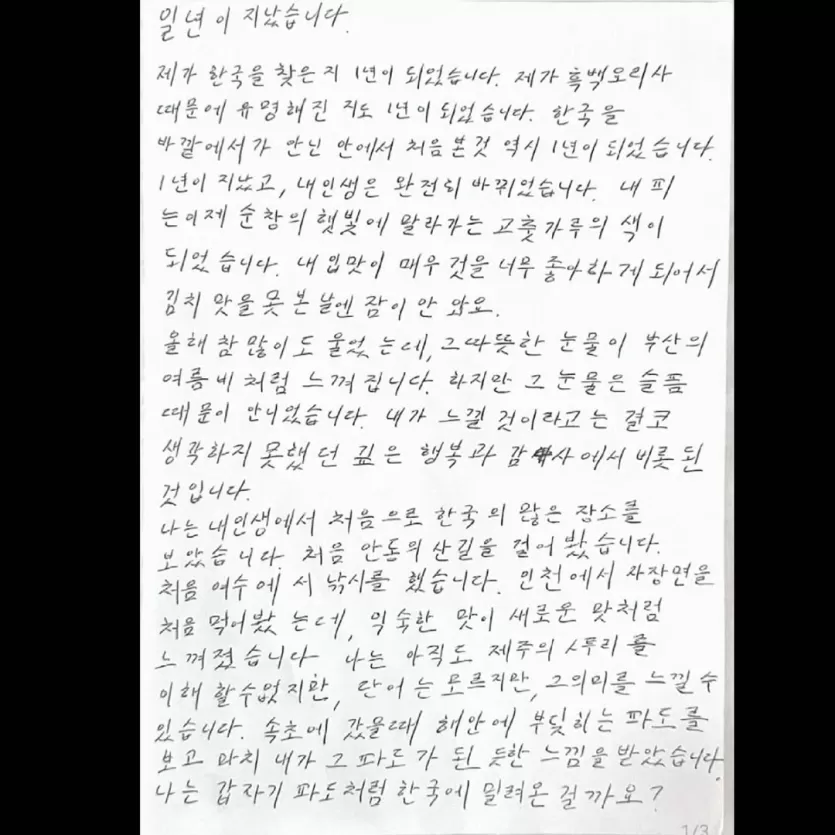 일년이 지났습니다.
제가 한국을 찾은 지 1년이 되었습니다. 제가 흑백요리사
때문에 유명해진 지도 1년이 되었습니다. 한국을
바깥에서가 안닌 안에서 처음 본것 역시 1년이 되었습니다.
1년이 지났고, 내인생은 완전히 바뀌었습니다. 내 피
는이제 순창의 햇빛에 말라가는 고춧가루의 색이
되었습니다. 내 입맛이 매우 것을 너무 좋아하게 되어서
김치 맛을 못 본 날엔 잠이 안 와요.
올해 참 많이도 울었는데, 그따뜻한 눈물이 부산의
여름비처럼 느껴집니다. 하지만 그 눈물은 슬픔
때문이 안니었습니다. 내가 느낄 것이라고는 결코
생각하지 못했던 깊은 행복과 감사에서 비롯된
것입니다.
나는 내인생에서 처음으로 한국의 많은 장소를
보았습니다. 처음 안동의 산길을 걸어봤습니다.
처음 여수에서 낚시를 했습니다. 인천에서 자장면을
처음 먹어봤는데, 익숙한 맛이 새로운 맛처럼
느껴졌습니다 나는 아직도 제주의 사투리를
이해 할수없지만, 단어는 모르지만, 그의미를 느낄 수
있습니다. 속초에 갔을때 해안에 부딪히는 파도를
보고 마치 내가 그 파도가 된 듯한 느낌을 받았습니다.
나는 갑자기 파도처럼 한국에 밀려온 걸까요?
1/3